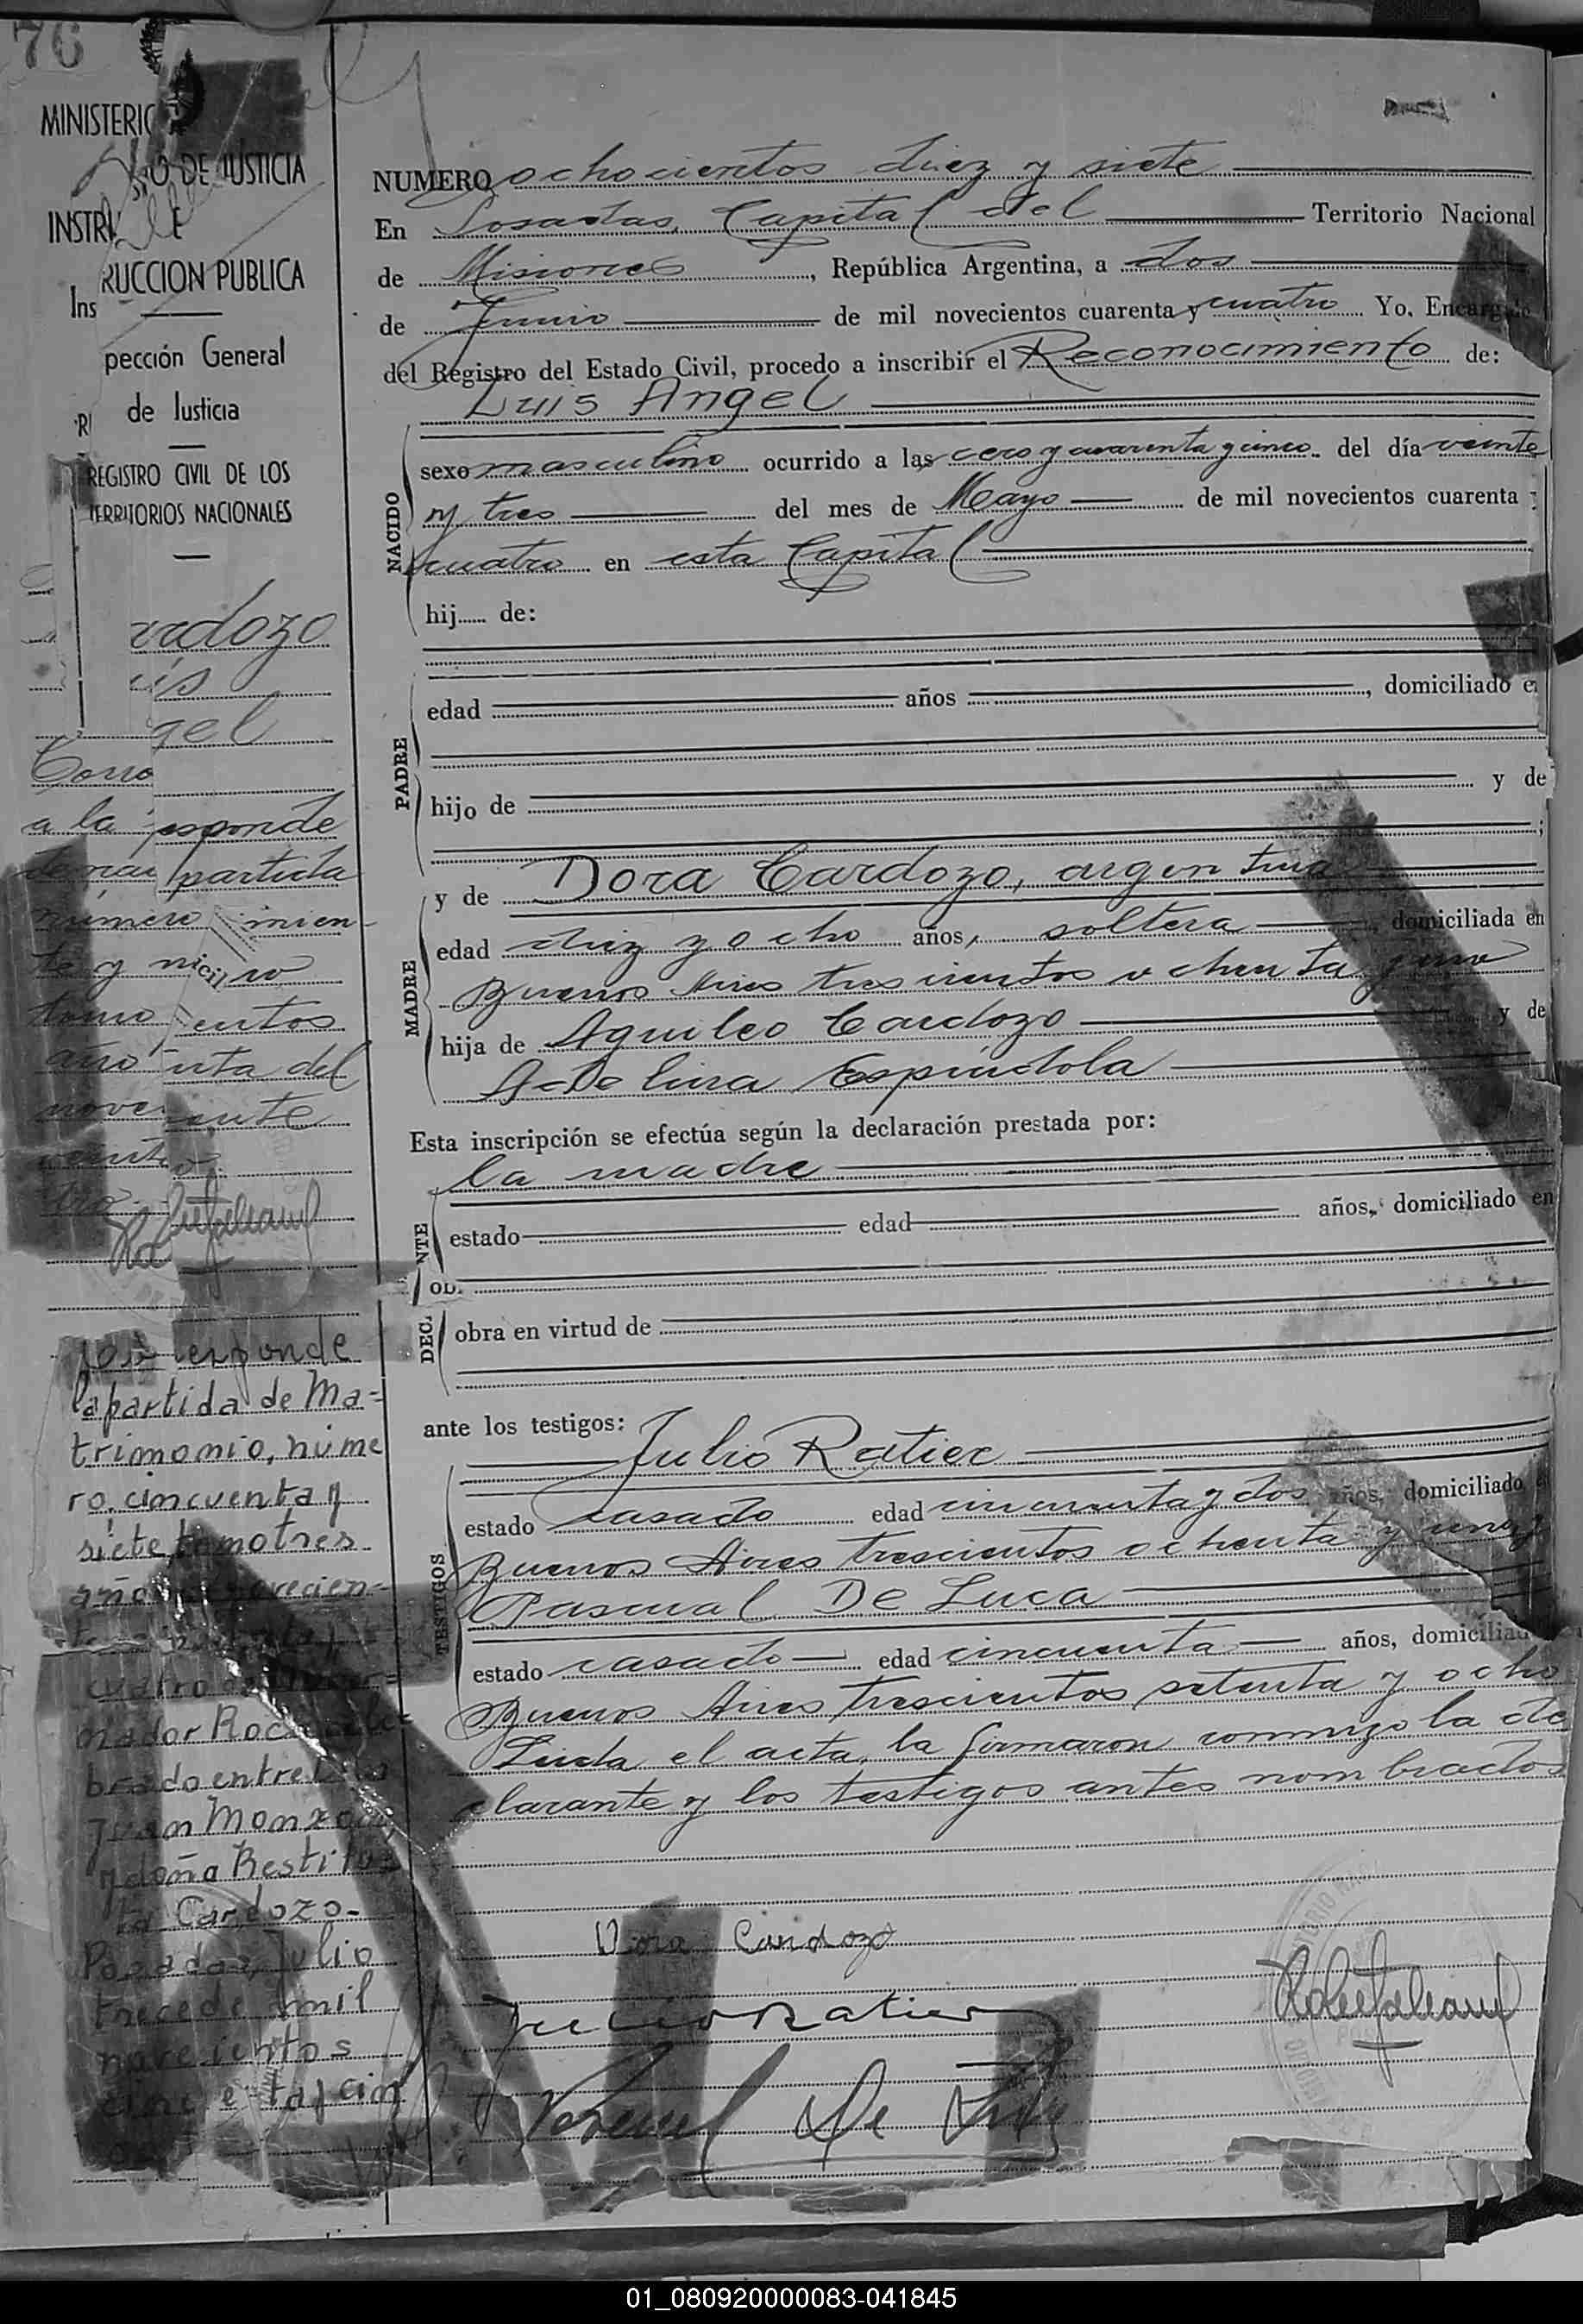 76
MINISTERIO DE JUSTICIA
INSTRUCCION PUBLICA
Inspección General
de Justicia
REGISTRO CIVIL DE LOS
TERRITORIOS NACIONALES
ardozo
is
gel
Corresponde
a la partida
número
tomo
del
nove
Corresponde
la partida de Ma-
trimonio, núme
ro. cincuenta y
siete, tomo tres
año novecien-
cuatro
nador Roca
brado entre
Juan Monzon
y doña Restitu
ta Cardozo-
Posadas, Julio
trece de mil
novecientos
NUMERO ochocientos diez y siete
En Posadas, Capital del Territorio Nacional
de Misiones, República Argentina, a dos
de Junio de mil novecientos cuarenta y cuatro Yo, Encargado
del Registro del Estado Civil, procedo a inscribir el Reconocimiento de:
Luis Angel
NACIDO
sexo masculino ocurrido a las cero y cuarenta y cinco del día veinte
y tres del mes de Mayo de mil novecientos cuarenta y
cuatro en esta Capital
hij...... de:
PADRE
edad años , domiciliado en
hijo de y de
MADRE
y de Dora Cardozo, argentina
edad diez y ocho años, soltera, domiciliada en
Buenos Aires trescientos ochenta y uno
hija de Aquileo Cardozo y de
Adelina Espíndola
Esta inscripción se efectúa según la declaración prestada por:
la madre
estado edad años, domiciliado en
obra en virtud de
ante los testigos:
Julio Ratier
TESTIGOS
estado casado edad cincuenta y dos años, domiciliado en
Buenos Aires trescientos ochenta y uno y
Pascual De Luca
estado casado edad cincuenta años, domiciliado
Buenos Aires trescientos setenta y ocho
Leida el acta, la firmaron conmigo la de
clarante y los testigos antes nombrados
Dora Cardozo
Julio Ratier
Pascual De Luca
01_080920000083-041845